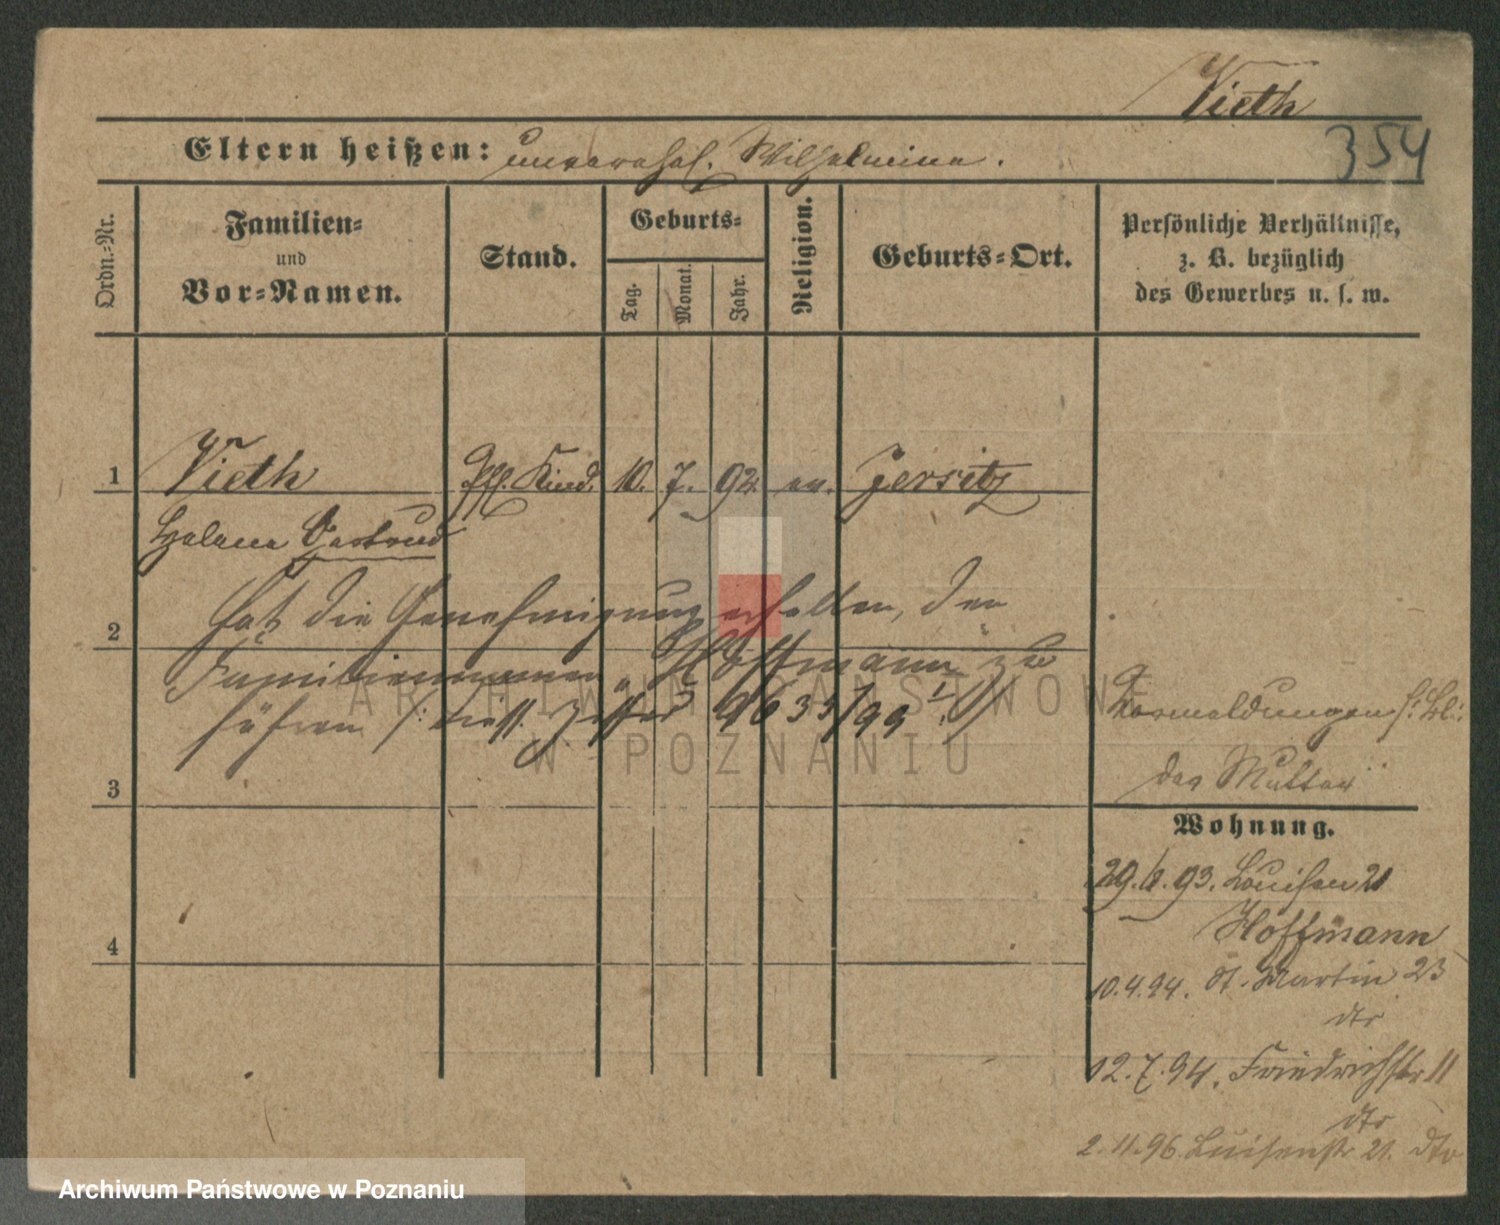 Vieth
354
Eltern heißen: unverehel. Wilhelmine.
Ordn.-Nr.
Familien-
und
Vor-Namen.
Stand.
Geburts-
Tag.
Monat.
Jahr.
Religion.
Geburts-Ort.
Persönliche Verhältnisse,
z. B. bezüglich
des Gewerbes u. s. w.
1 Vieth Kind. 10. 7. 92 ev. Jersitz
Helene Gertrud
hat die Genehmigung erhalten, den
2
Familiennamen „Hoffmann" zu
führen 9633/99
3
4
Anmeldungen
der Mutter
Wohnung.
29. 93. Louisen 21
Hoffmann
10.4.94. St. Martin 23
dto
12.7.94. Friedrichstr 11
dto
2.11.96 Luisenstr 21. dto
ARCHIWUM PAŃSTWOWE
W POZNANIU
Archiwum Państwowe w Poznaniu